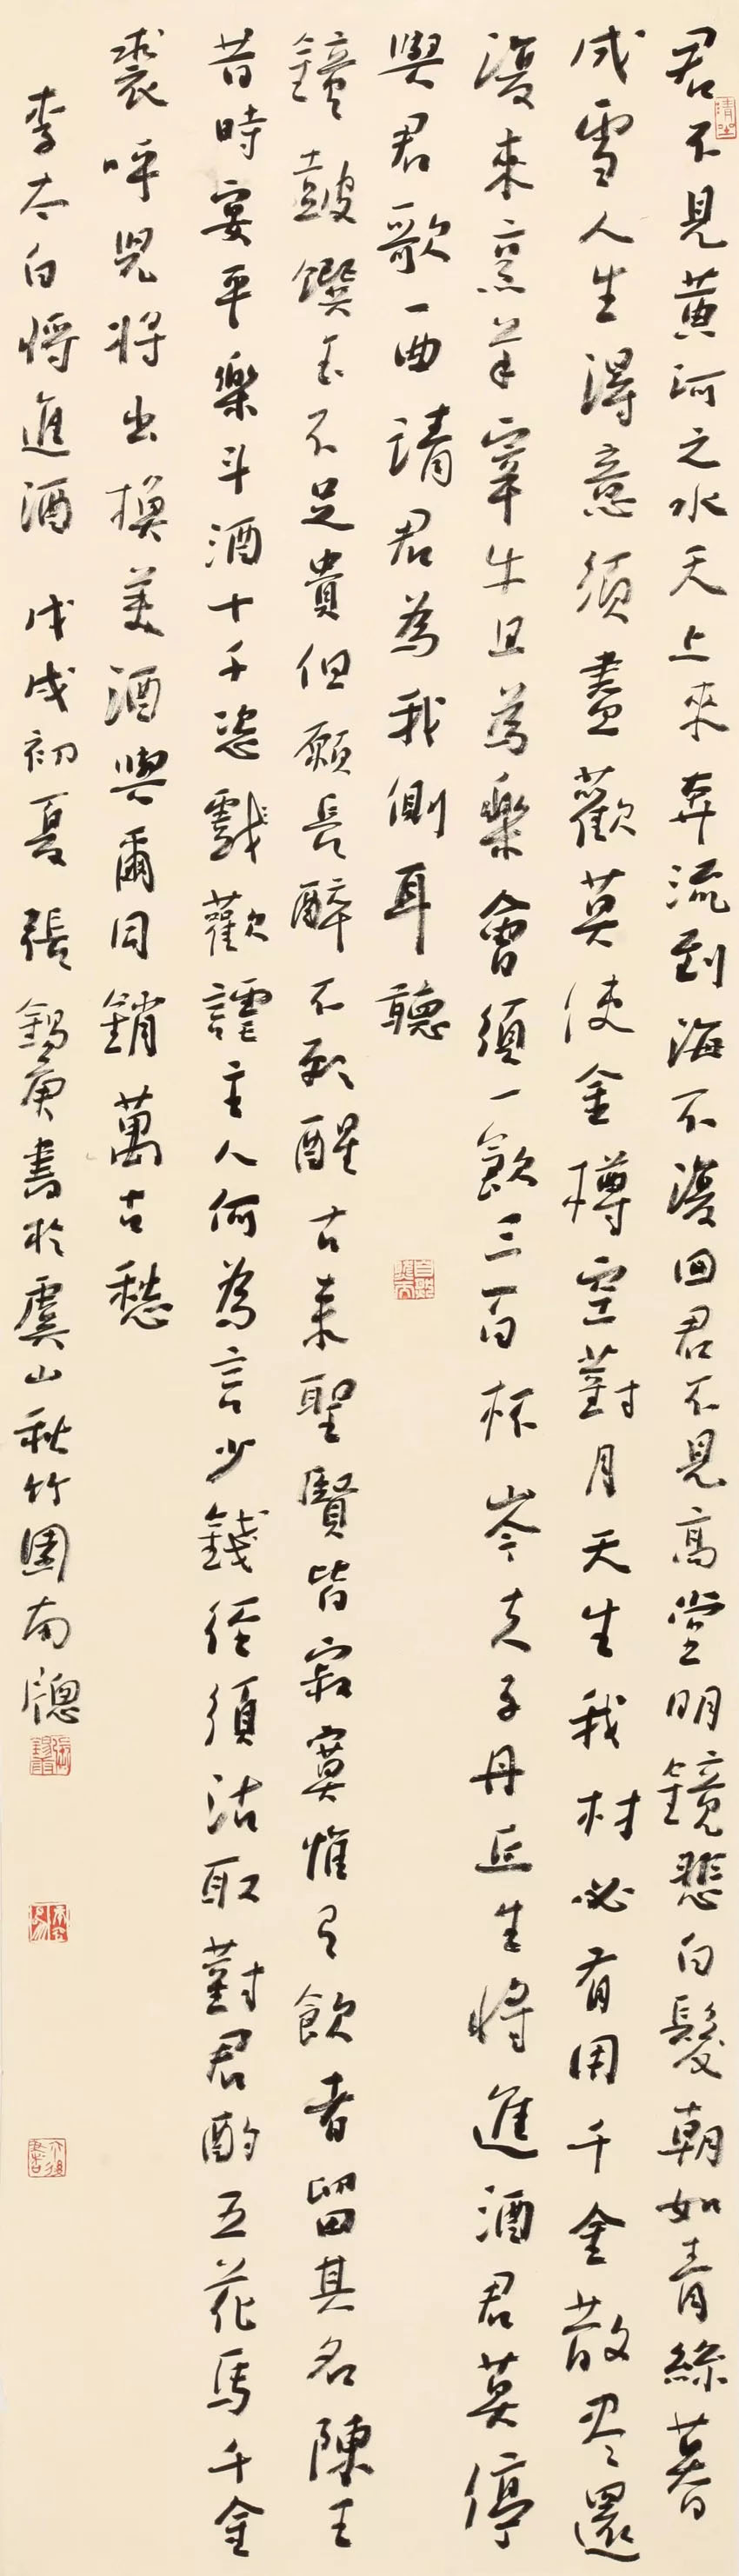 君不見黄河之水天上來奔流到海不復回君不見高堂明鏡悲白髮朝如青絲暮
成雪人生得意須盡歡莫使金樽空對月天生我材必有用千金散盡還
復來烹羊宰牛且為樂會須一飲三百杯岑夫子丹丘生將進酒君莫停
與君歌一曲請君為我側耳聽
鐘鼓饌玉不足貴但願長醉不願醒古來聖賢皆寂寞惟有飲者留其名陳王
昔時宴平樂斗酒十千恣戲歡謔主人何為言少錢徑須沽取對君酌五花馬千金
裘呼兒將出換美酒與爾同銷萬古愁
李太白將進酒 戊戌初夏張錫庚書於虞山秋竹園南牕